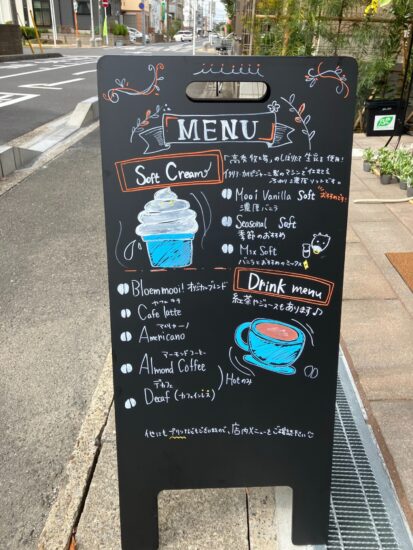 MENU
Soft Cream
Mooi Vanilla Soft
濃厚バニラ
Seasonal Soft
季節のおすすめ
Mix Soft
バニラとおすすめのミックス
Drink menu
紅茶やジュースもあります♪
Bloemmooi! オリジナルブレンド
カフェラテ
Cafe latte
アメリカーノ
Americano
アーモンドコーヒー
Almond Coffee
デカフェ
Decaf (カフェインレス)
Hotのみ
他にもプリンなどもございますので、店内メニューをご確認下さい